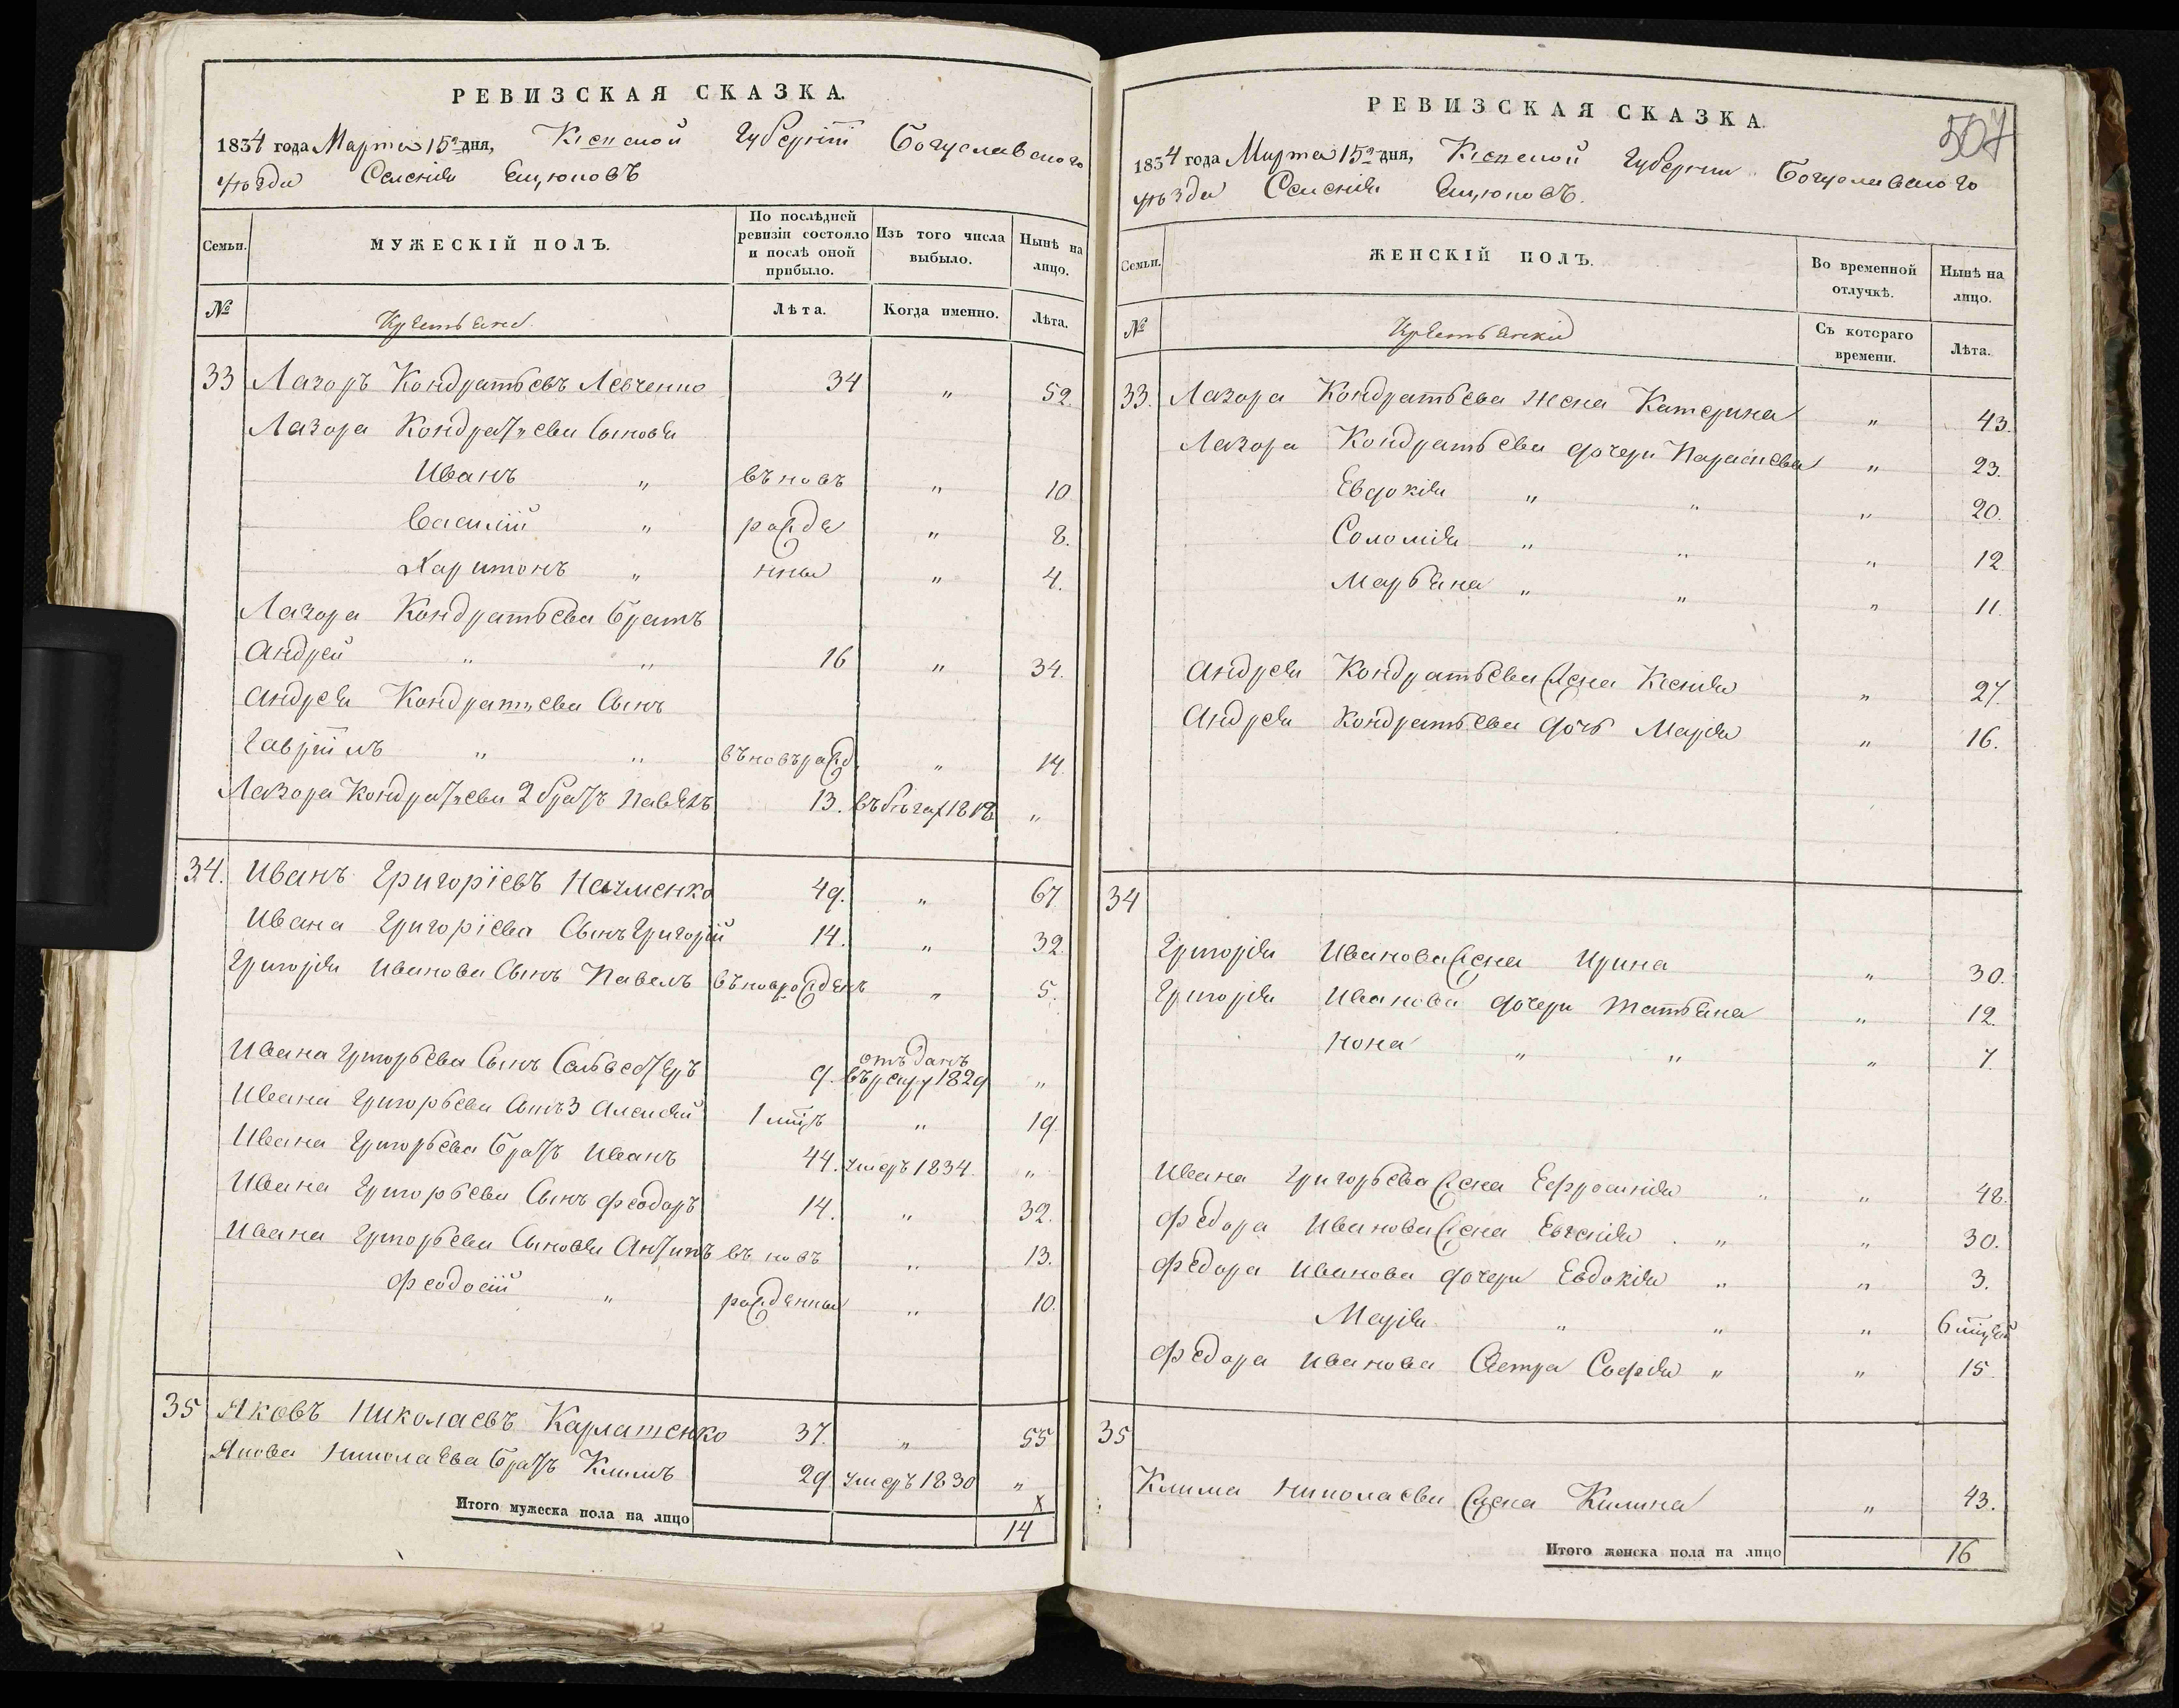 РЕВИЗСКАЯ СКАЗКА.
1834 года Марта 15го дня, Кіевской Губерніи Богуславского
уѣзда Селенія
Семьи.
МУЖЕСКІЙ ПОЛЪ.
По послѣдней ревизіи состояло и послѣ оной прибыло.
Изъ того числа выбыло.
Нынѣ на лицо.
№
Крестьяне
Лѣта.
Когда именно.
Лѣта.
33 Лазоръ Кондратьевъ Левченко 34 „ 52.
Лазора Кондратьева Сыновья
Иванъ „ въновъ „ 10
Василій „ рожде „ 8.
Харитонъ „ нны „ 4.
Лазора Кондратьева Братъ
Андрей „ „ 16 „ 34.
Андрея Кондратьева Сынъ
Гавріилъ „ „ въновърожд. „ 14.
Лазора Кондратьева 2 братъ Павелъ 13. въ бѣгах 1818 „
34. Иванъ Григоріевъ Науменко 49. „ 67
Ивана Григоріева Сынъ Григорій 14. „ 32.
Григорія Иванова Сынъ Павелъ въноврожденъ „ 5.
Ивана Григорьева Сынъ Сильвестръ 9. отъданъ въ рекру 1829 „
Ивана Григорьева Сынъ 3 Алексѣй 1 „ 19.
Ивана Григорьева Братъ Иванъ 44. умеръ 1834. „
Ивана Григорьева Сынъ Феодоръ 14. „ 32.
Ивана Григорьева Сыновья Антипъ въ новъ „ 13.
Феодосій „ рожденны „ 10.
35 Яковъ Николаевъ Карлатенко 37. „ 55
Якова Николаева Братъ Климъ 29. умеръ 1830 „
х
Итого мужеска пола на лицо 14
507
РЕВИЗСКАЯ СКАЗКА.
1834 года Марта 15го дня, Кіевской Губерніи Богуславского
уѣзда Селенія
Семьи.
ЖЕНСКІЙ ПОЛЪ.
Во временной отлучкѣ.
Нынѣ на лицо.
№
Крестьянки
Съ котораго времени.
Лѣта.
33. Лазора Кондратьева жена Катерина „ 43.
Лазора Кондратьева дочери Параскева „ 23.
Евдокія „ „ „ 20.
Соломія „ „ „ 12
Марьяна „ „ „ 11.
Андрея Кондратьева Жена Ксенія „ 27.
Андрея Кондратьева дочь Марія „ 16.
34
Григорія Иванова Жена Ирина „ 30.
Григорія Иванова дочери Татьяна „ 12.
„ „ „ 7.
Ивана Григорьева Жена Ефросинія „ „ 48.
Федора Иванова Жена Евгенія „ „ 30.
Федора Иванова дочери Евдокія „ „ 3.
Марія „ „ „ 6
Федора Иванова Сестра Софія „ „ 15
35
Клима Николаева Жена Килина „ 43.
Итого женска пола на лицо 16